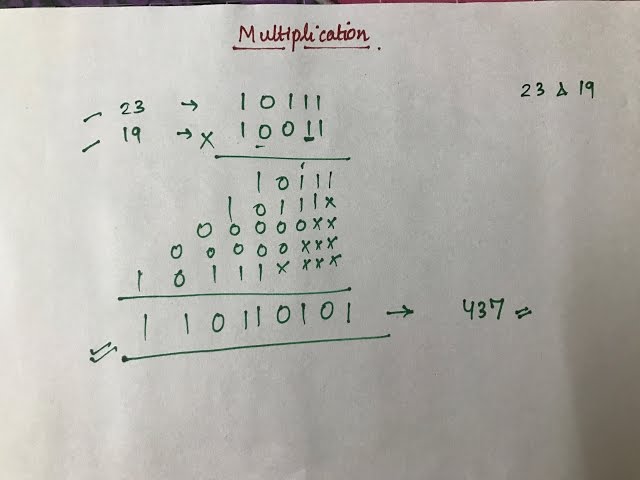 Multiplication.
23 & 19
23 → 10111
19 → × 10011
10111
10111×
00000××
00000×××
10111××××
110110101 → 437